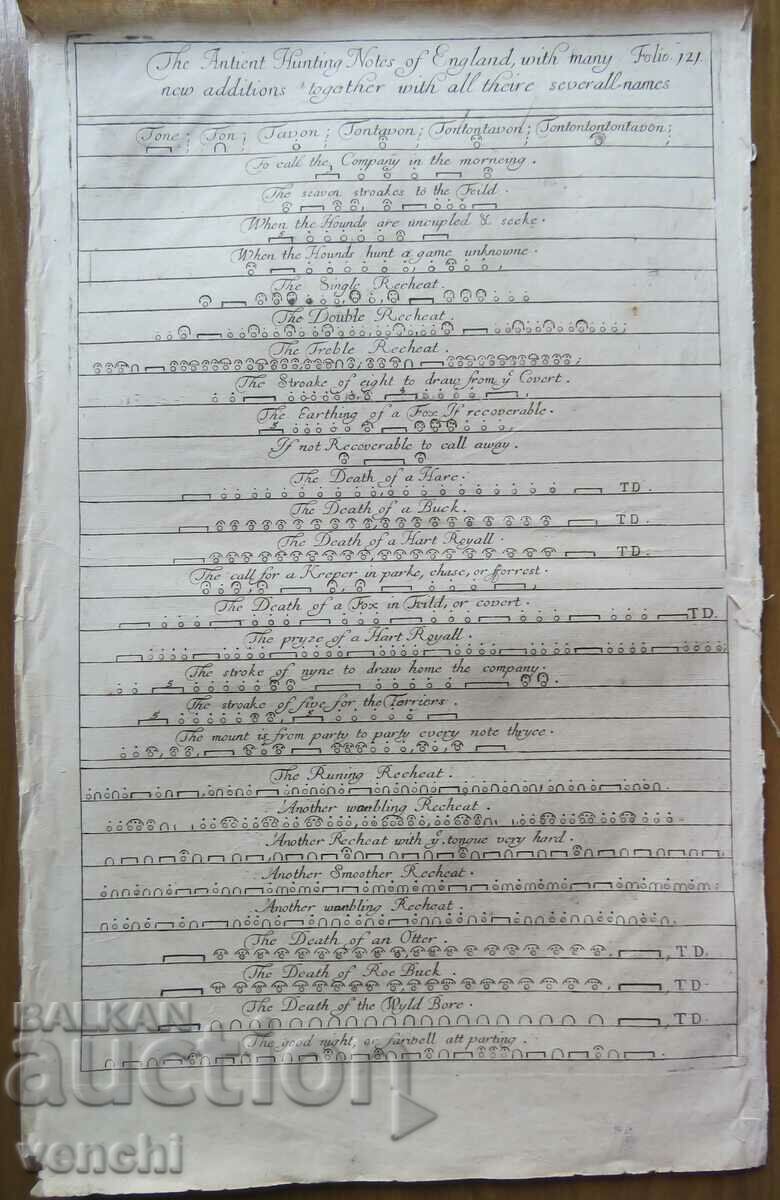 The Antient Hunting Notes of England, with many Folio. 121.
new additions together with all theire severall names
Tone; Ton; Tavon; Tontavon; Tontontavon; Tontontontontavon;
To call the Company in the morneing.
The seaven stroakes to the Feild.
When the Hounds are uncupled & seeke.
When the Hounds hunt a game unknowne.
The Single Recheat.
The Double Recheat.
The Treble Recheat.
The Stroake of eight to draw from ye Covert.
The Earthing of a Fox If recoverable.
If not Recoverable to call away.
The Death of a Hare.
TD.
The Death of a Buck.
TD.
The Death of a Hart Royall.
TD.
The call for a Keeper in parke, chase, or fforrest.
The Death of a Fox in Feild, or covert.
TD.
The pryze of a Hart Royall.
The stroke of nyne to draw home the company.
The stroake of five for the Terriers.
The mount is from party to party every note thryce.
The Runing Recheat.
Another warbling Recheat.
Another Recheat with ye tongue very hard.
Another Smoother Recheat.
Another warbling Recheat.
The Death of an Otter.
TD.
The Death of Roe Buck.
TD.
The Death of the Wyld Bore.
TD.
The good night, or farwell att parting.
BALKAN
auction
venchi